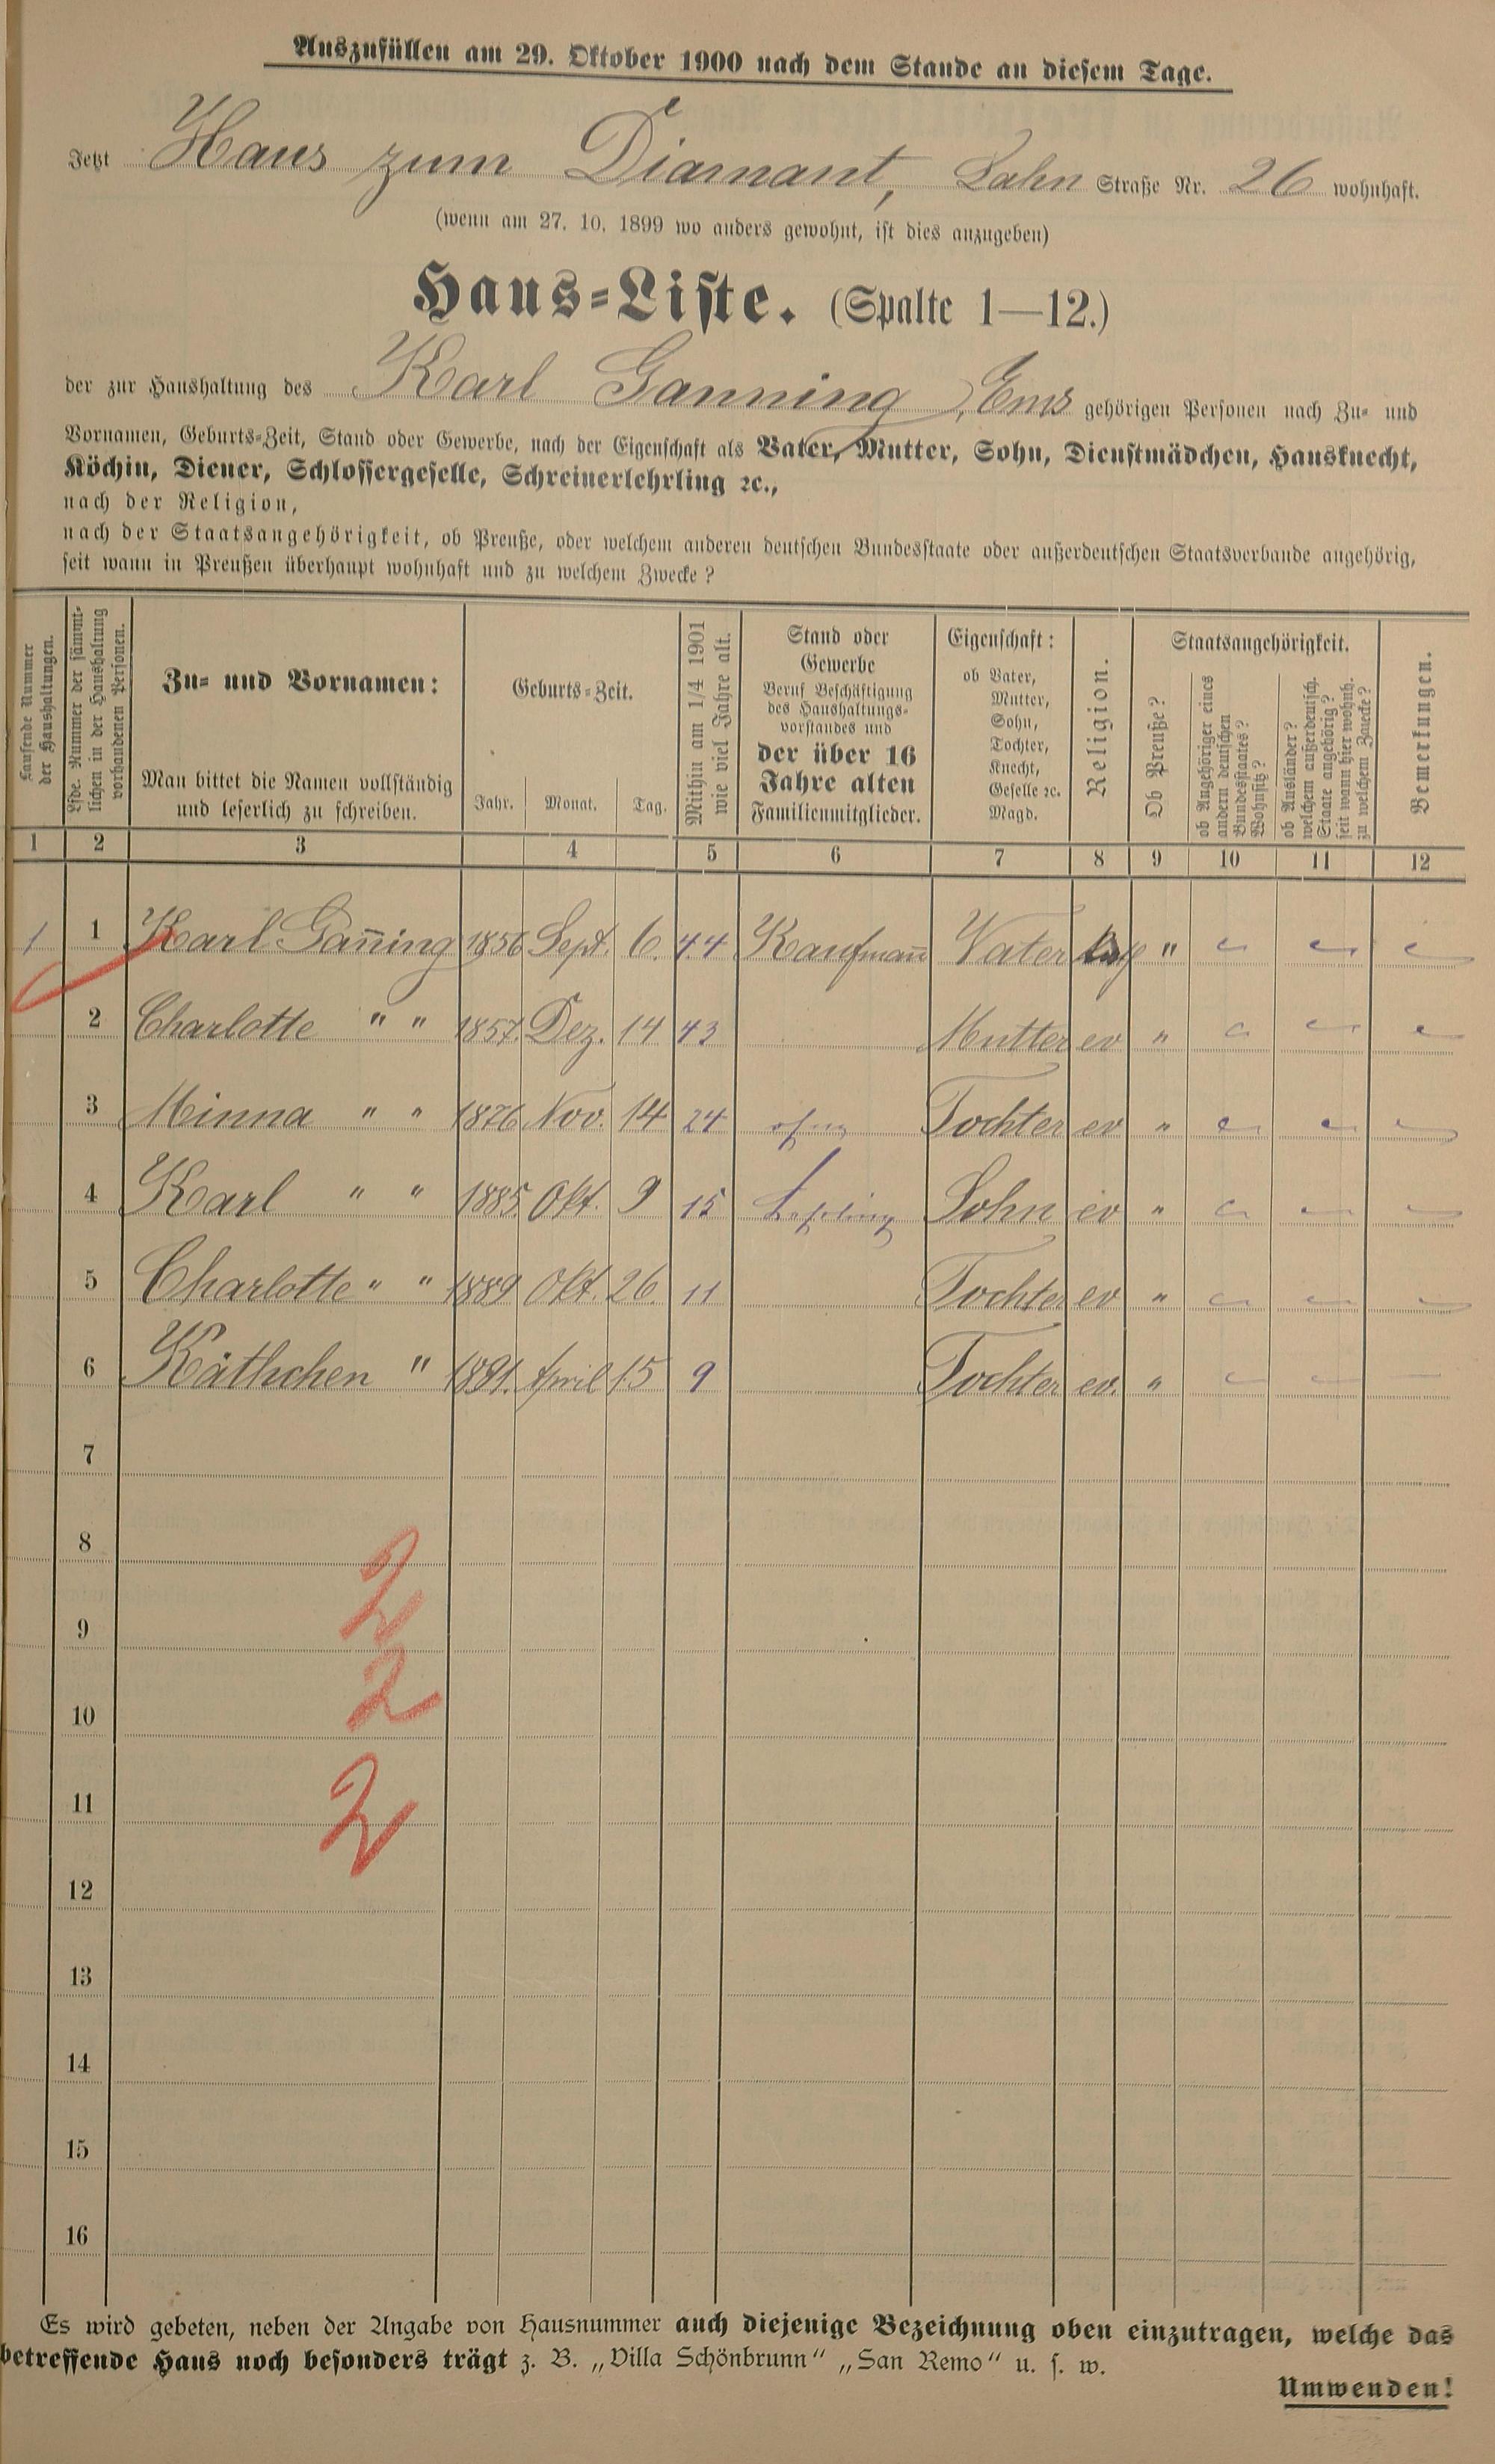 Auszufüllen am 29. Oktober 1900 nach dem Stande an diesem Tage.
Jetzt Haus zum Diamant, Lahn Straße Nr. 26 wohnhaft.
(wenn am 27. 10. 1899 wo anders gewohnt, ist dies anzugeben)
Haus=Liste. (Spalte 1—12.)
der zur Haushaltung des Karl Ganning, Ems gehörigen Personen nach Zu= und
Vornamen, Geburts=Zeit, Stand oder Gewerbe, nach der Eigenschaft als Vater, Mutter, Sohn, Dienstmädchen, Hausknecht,
Köchin, Diener, Schlossergeselle, Schreinerlehrling ꝛc.,
nach der Religion,
nach der Staatsangehörigkeit, ob Preuße, oder welchem anderen deutschen Bundesstaate oder außerdeutschen Staatsverbande angehörig,
seit wann in Preußen überhaupt wohnhaft und zu welchem Zwecke?
Laufende Nummer
der Haushaltungen.
Lfde. Nummer der sämmt-
lichen in der Haushaltung
vorhandenen Personen.
Zu= und Vornamen:
Man bittet die Namen vollständig
und leserlich zu schreiben.
Geburts=Zeit.
Jahr. Monat. Tag.
Mithin am 1/4 1901
wie viel Jahre alt.
Stand oder
Gewerbe
Beruf Beschäftigung
des Haushaltungs-
vorstandes und
der über 16
Jahre alten
Familienmitglieder.
Eigenschaft:
ob Vater,
Mutter,
Sohn,
Tochter,
Knecht,
Geselle ꝛc.
Magd.
Religion.
Staatsangehörigkeit.
Ob Preuße?
ob Angehöriger eines
andern deutschen
Bundesstaates?
Wohnsitz?
ob Ausländer?
welchem außerdeutsch.
Staate angehörig?
seit wann hier wohnh.
zu welchem Zwecke?
Bemerkungen.
1 2 3 4 5 6 7 8 9 10 11 12
1 1 Karl Gan̄ing 1856 Sept. 6. 44 Kaufman̄ Vater "
2 Charlotte " " 1857. Dez. 14 43 Mutter ev "
3 Minna " " 1876 Nov. 14 24 ohne Tochter ev "
4 Karl " " 1885. Okt. 9 15 Lehrling Sohn ev "
5 Charlotte " " 1889 Okt. 26. 11 Tochter ev "
6 Käthchen " 1891. April 15 9 Tochter ev. "
7
8
2
9
2
10
11
2
12
13
14
15
16
Es wird gebeten, neben der Angabe von Hausnummer auch diejenige Bezeichnung oben einzutragen, welche das
betreffende Haus noch besonders trägt z. B. „Villa Schönbrunn“ „San Remo“ u. s. w.
Umwenden!